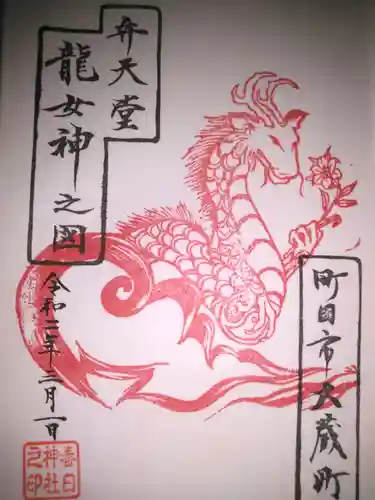 弁天堂
龍女神之図
令和二年三月一日
町田市大蔵町
春日
神社
之印